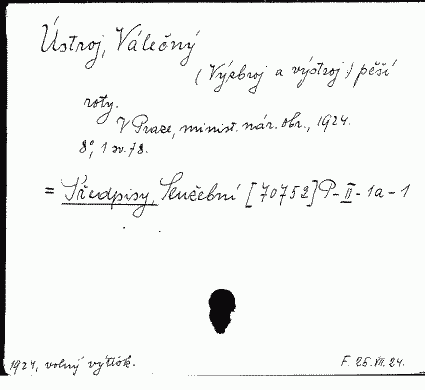 Ústroj, Válečný
(Výzbroj a výstroj) pěší
roty.
V Praze, minist. nár. obr., 1924.
8°, 1 sv. 78.
= Předpisy, Služební [70752] P-II-1a-1
1924, volný výtisk. F. 25.VII.24.